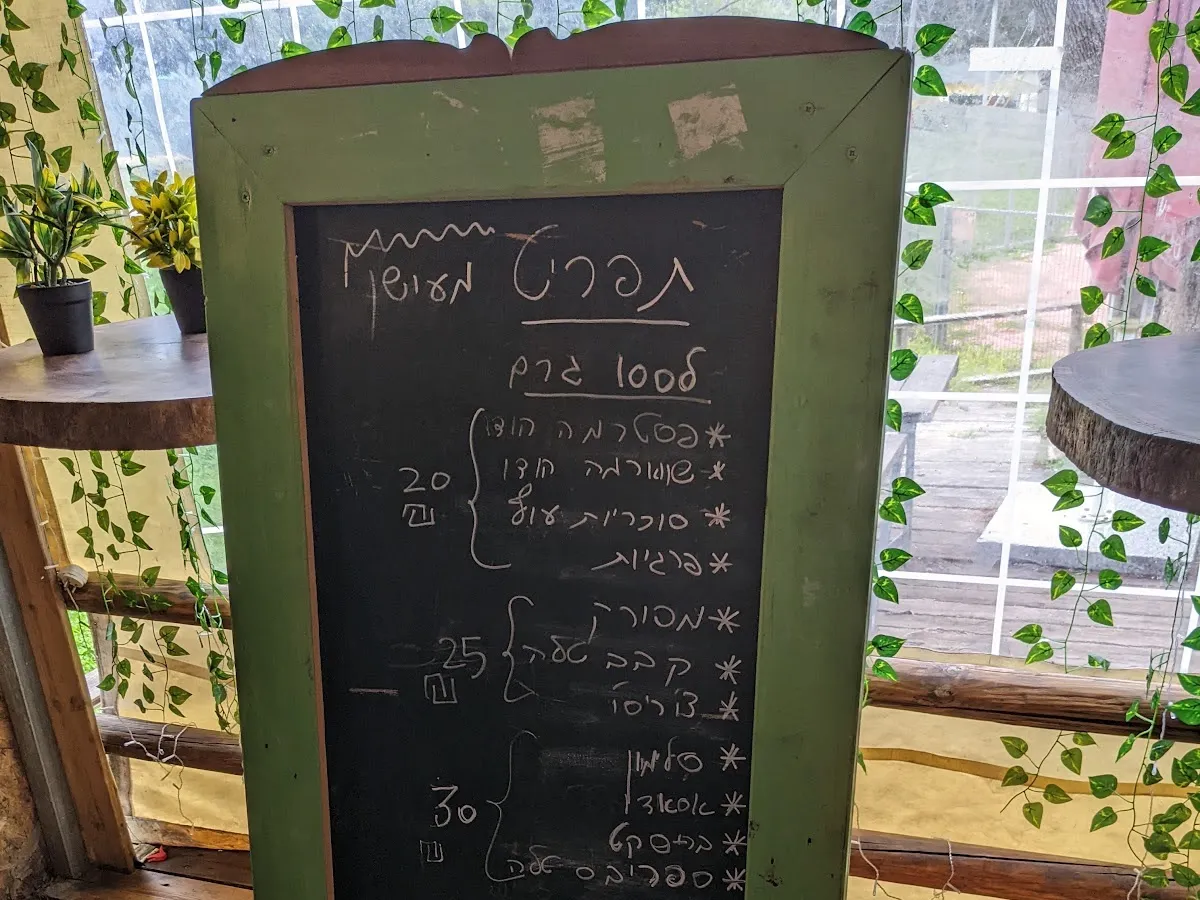 תפריט מעושן
ל 100 גרם
* פסטרמה הודו
* שווארמה הודו
* סוכריות עוף
* פרגיות
20
₪
* מפורק
* קבב טלה
* צ'וריסו
25
₪
* סלימון
* אסאדו
* בריסקט
* ספריבס טלה
30
₪